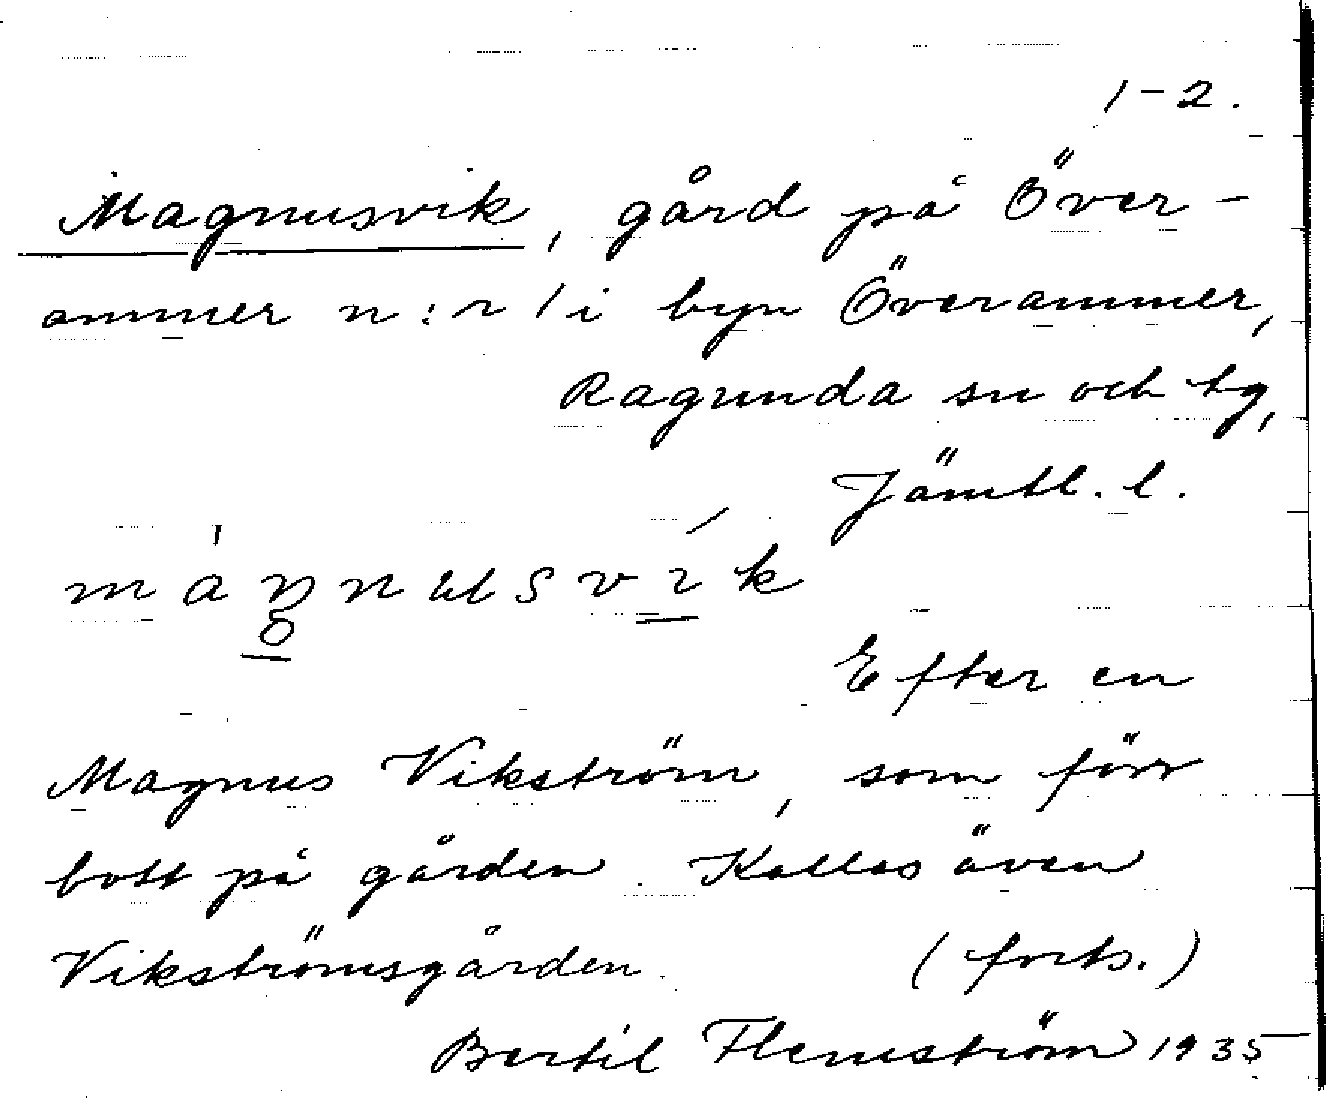 1-2.
Magnusvik, gård på Över-
ammer n:r 1 i byn Överammer,
Ragunda sn och tg,
Jämtl. l.
Efter en
Magnus Vikström, som förr
bott på gården. Kallas även
Vikströmsgården. (forts.)
Bertil Flemström 1935